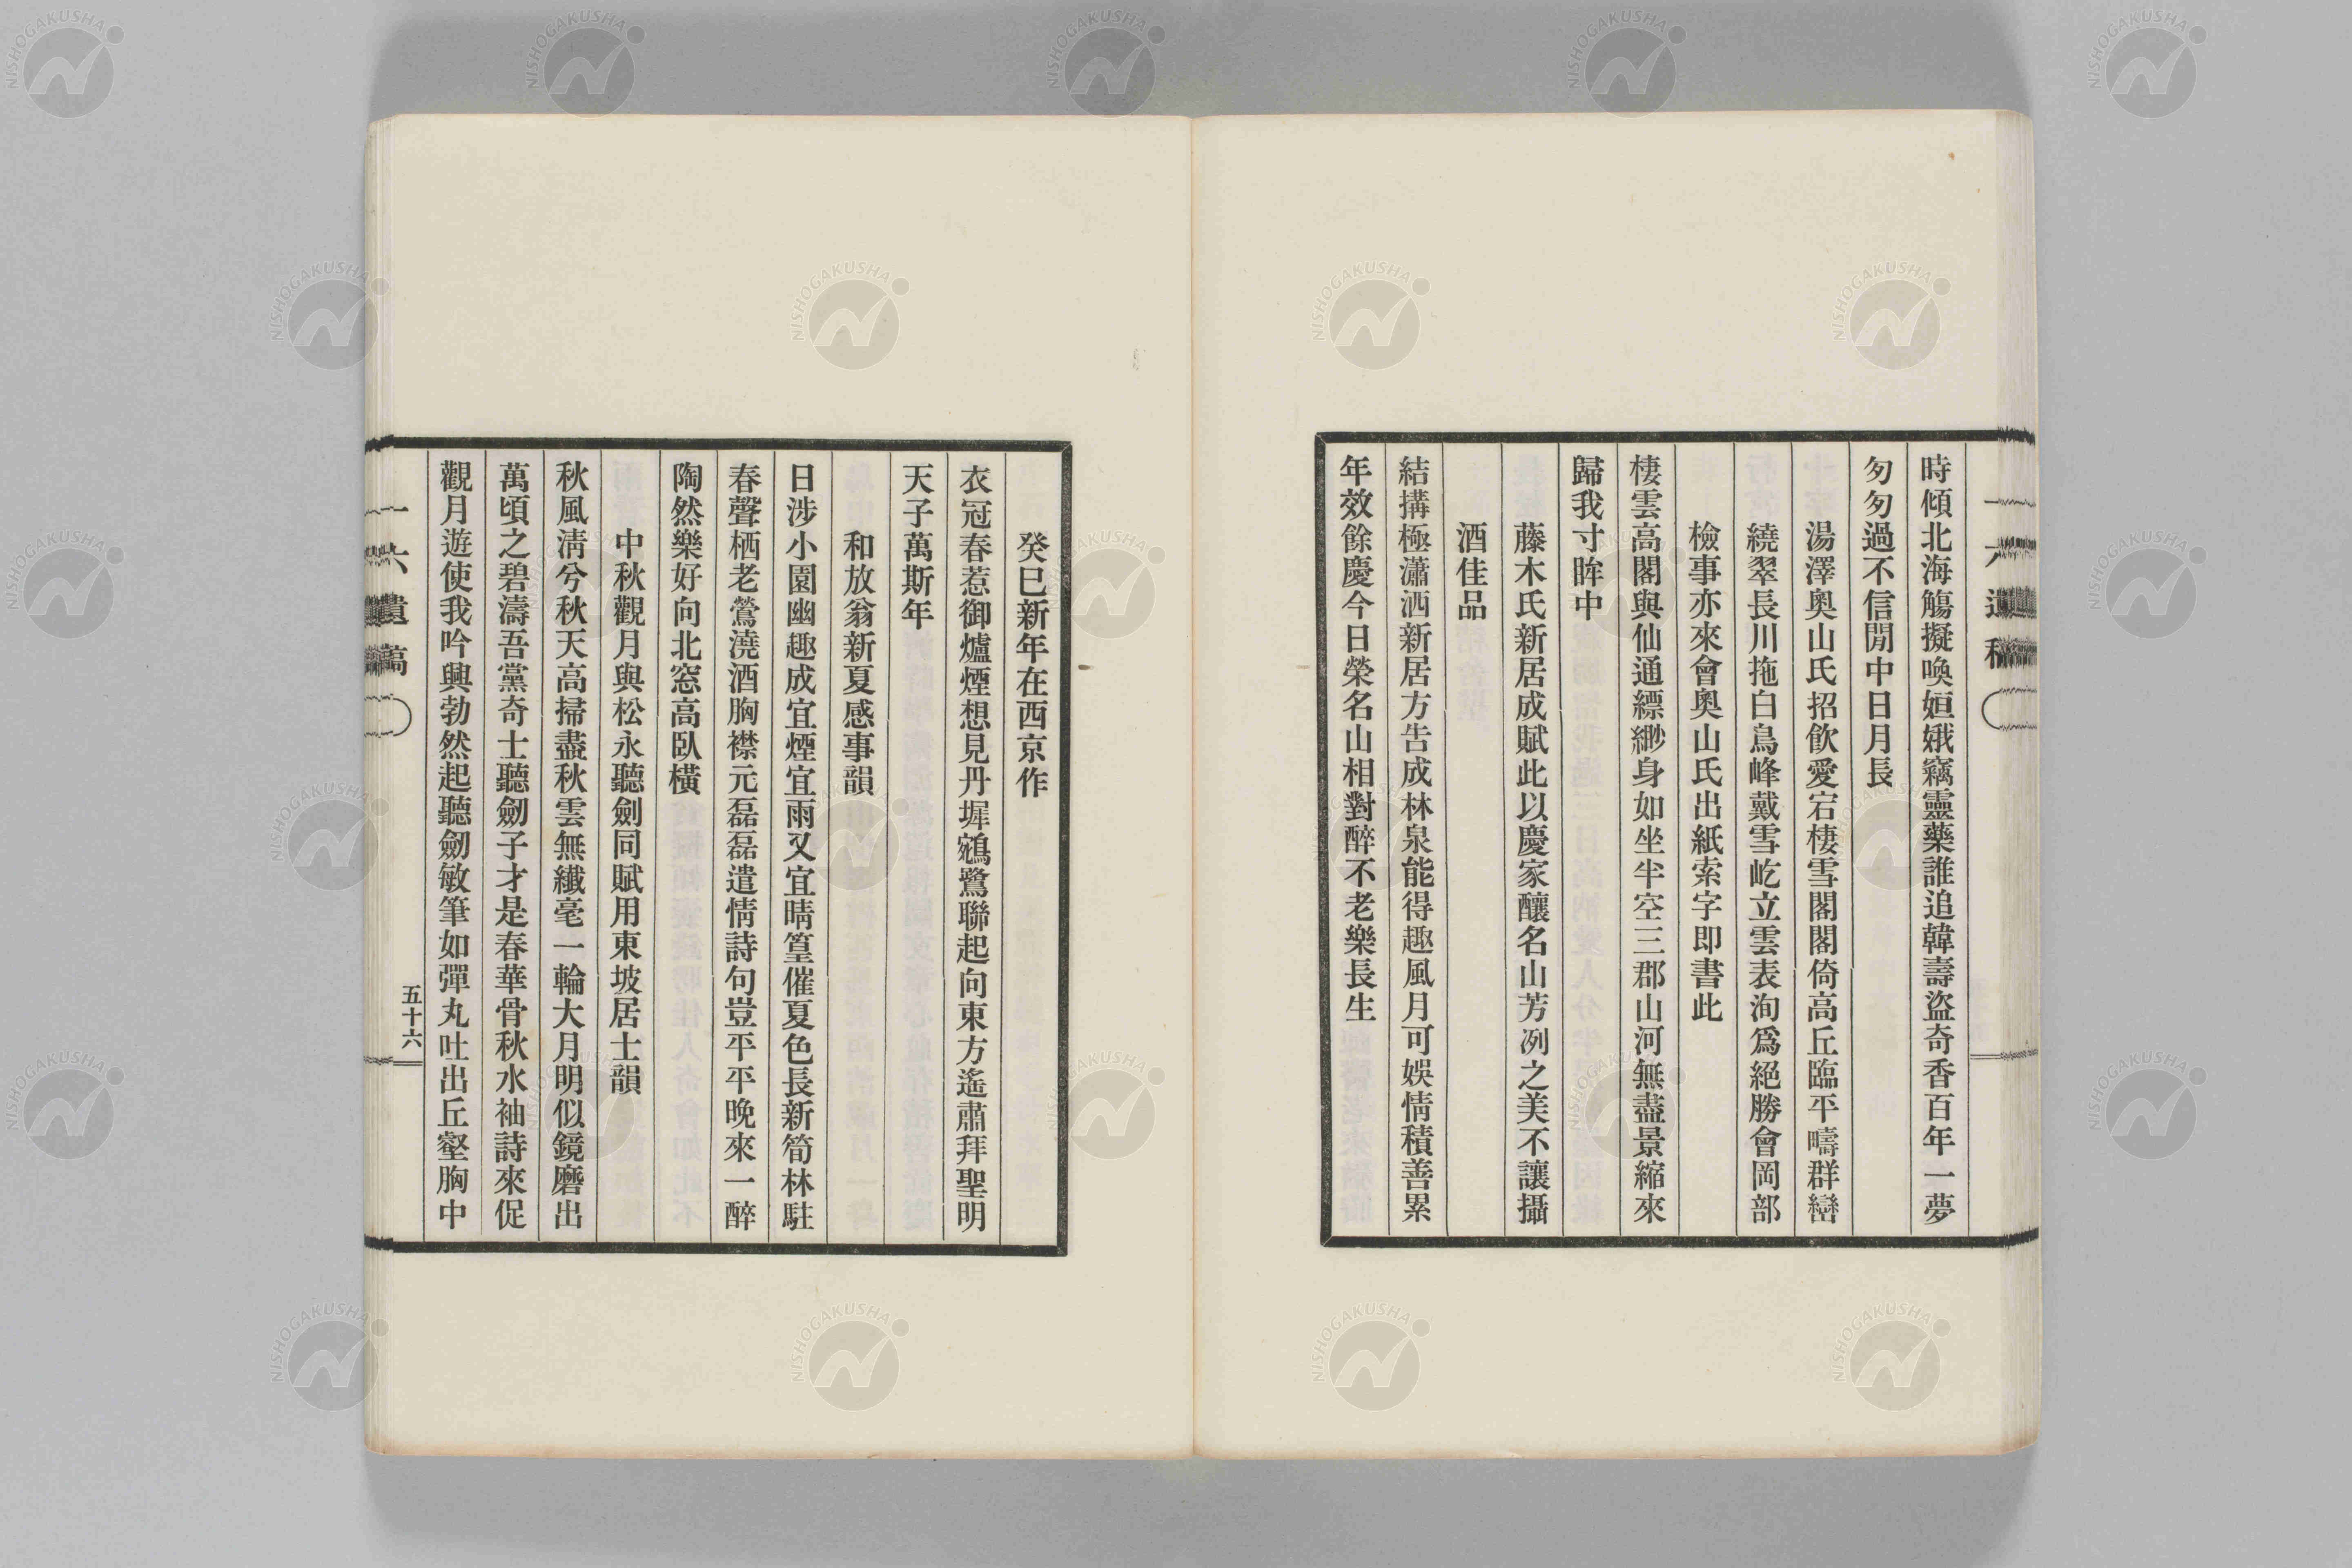 時傾北海觴擬喚姮娥竊靈藥誰追韓壽盜奇香百年一夢
匆匆過不信閒中日月長
湯澤奧山氏招飮愛宕棲雪閣閣倚高丘臨平疇群巒
繞翠長川拖白鳥峰戴雪屹立雲表洵爲絕勝會岡部
檢事亦來會奧山氏出紙索字即書此
棲雲高閣與仙通縹緲身如坐半空三郡山河無盡景縮來
歸我寸眸中
藤木氏新居成賦此以慶家釀名山芳冽之美不讓攝
酒佳品
結搆極瀟洒新居方告成林泉能得趣風月可娛情積善累
年效餘慶今日榮名山相對醉不老樂長生
癸巳新年在西京作
衣冠春惹御爐煙想見丹墀鵷鷺聯起向東方遙肅拜聖明
天子萬斯年
和放翁新夏感事韻
日涉小園幽趣成宜煙宜雨又宜晴篁催夏色長新筍林駐
春聲栖老鶯澆酒胸襟元磊磊遣情詩句豈平平晚來一醉
陶然樂好向北窓高臥橫
中秋觀月與松永聽劍同賦用東坡居士韻
秋風淸兮秋天高掃盡秋雲無纖毫一輪大月明似鏡磨出
萬頃之碧濤吾黨奇士聽劒子才是春華骨秋水袖詩來促
觀月遊使我吟興勃然起聽劒敏筆如彈丸吐出丘壑胸中
一六遺稿
五十六
NISHOGAKUSHA